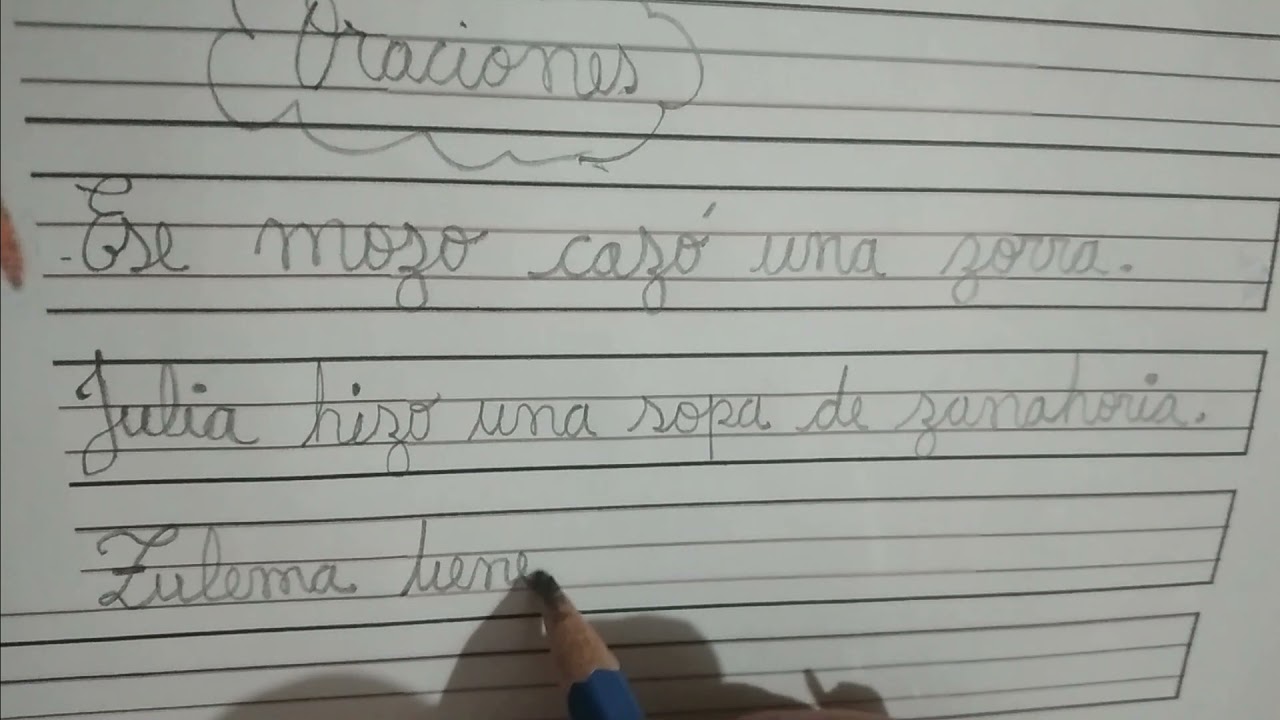 Oraciones
- Ese mozo cazó una zorra.
Julia hizo una sopa de zanahoria.
Zulema tiene